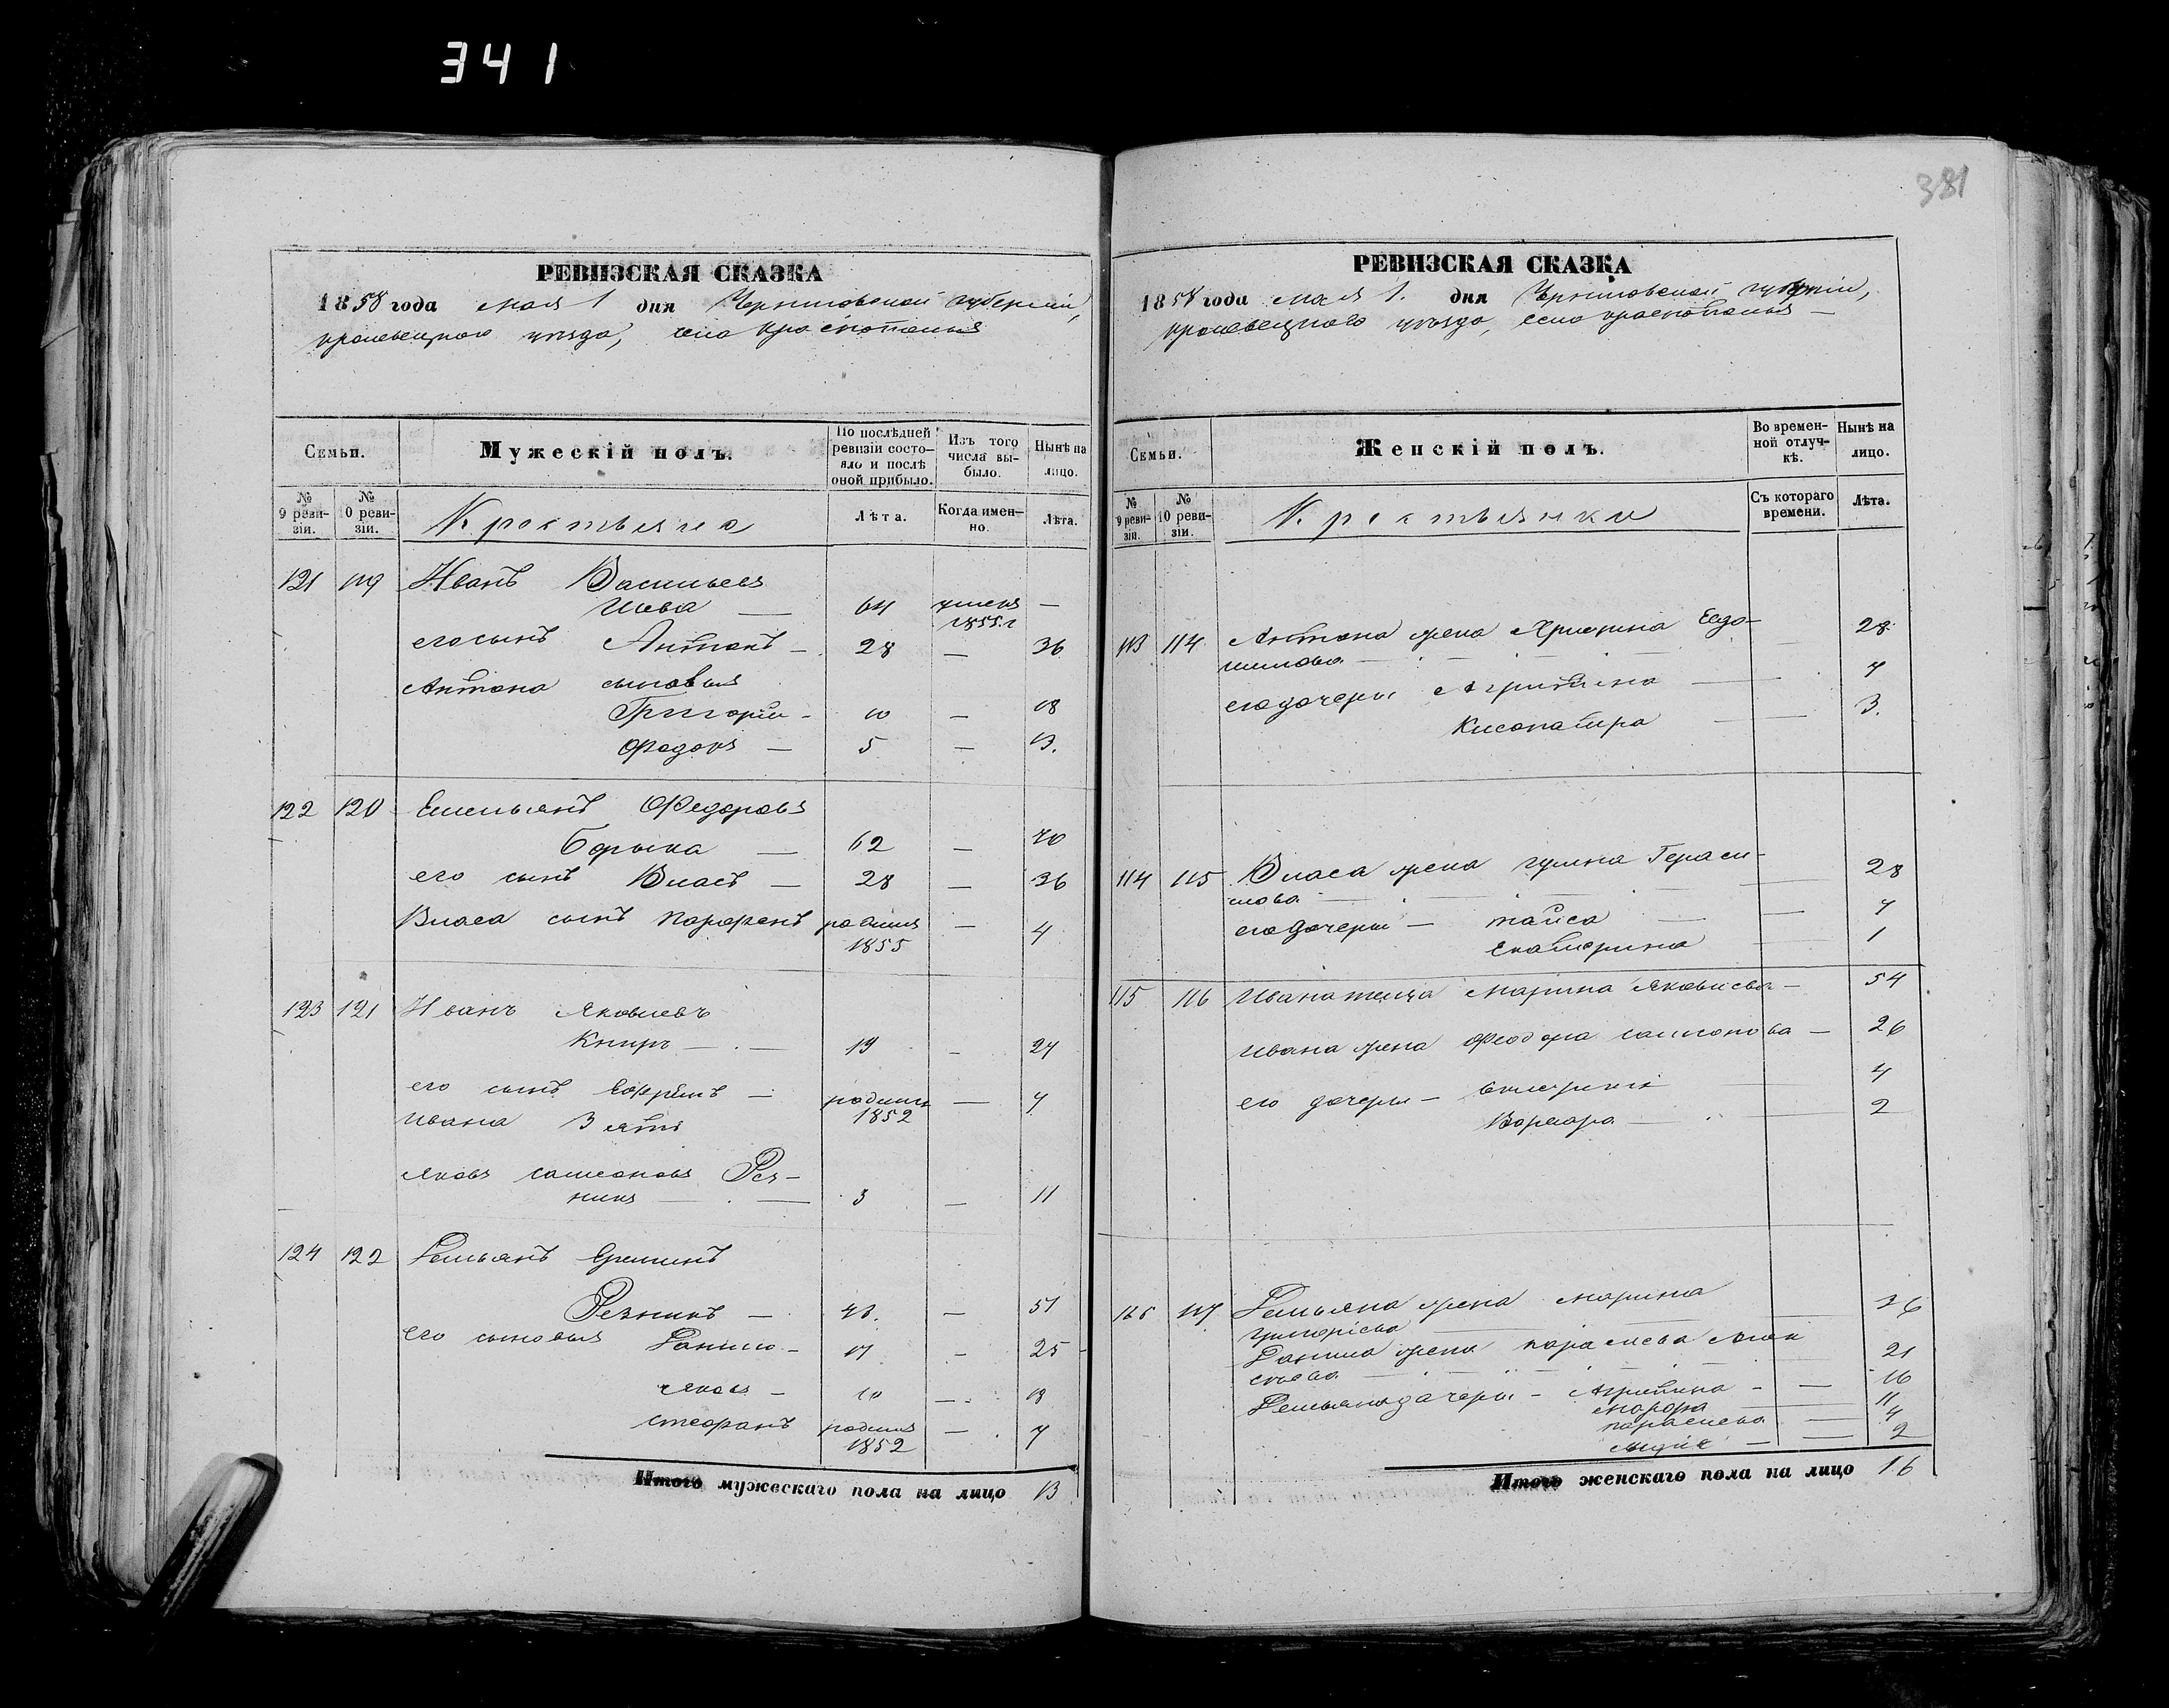 341
381
РЕВИЗСКАЯ СКАЗКА
1858 года мая 1 дня Черниговской губерніи,
кролевецкого уезда, село краснополья
Семьи.
Мужескій полъ.
По послѣдней ревизіи состояло и послѣ оной прибыло.
Изъ того числа выбыло.
Нынѣ на лицо.
№ 9 ревизіи.
№ 0 ревизіи.
Крестьяна
Лѣта.
Когда именно.
Лѣта.
121 119 Иванъ Васильевъ
Шева — 64 умеръ 1855 г —
его сынъ Антонъ — 28 — 36
Антона сыновья
Григорій — 10 — 18
Федоръ — 5 — 13.
122 120 Емельянъ Федоровъ
62 — 70
его сынъ Власъ — 28 — 36
Власа сынъ Парфенъ родился 1855 — 4
123 121 Иванъ Яковлевъ
Книръ — 19 — 27
его сынъ Ефремъ — родился 1852 — 7
Ивана Зять
Яковъ Самсоновъ Рез-
никъ — 3 — 11
124 122 Демьянъ Ереминъ
Резникъ — 43. — 51
его сыновья Данило — 17 — 25
Яковъ — 10 — 18
Стефанъ родился 1852 — 7
Итого мужескаго пола на лицо 13
РЕВИЗСКАЯ СКАЗКА
1858 года мая 1. дня Черниговской губерніи,
кролевецкого уезда, село краснополья —
Семьи.
Женскій полъ.
Во временной отлучкѣ.
Нынѣ на лицо.
№ 9 ревизіи.
№ 10 ревизіи.
Крестьянки
Съ котораго времени.
Лѣта.
113 114 Антона жена Христина Евдо-
кимова — 28
его дочери Агрипина — 7
Клеопатира — 3.
114 115 Власа жена Гераси-
мова — 28
его дочери — Таиса — 7
Екатерина — 1
115 116 Ивана теща Марина Яковлева — 54
Ивана жена Феодора Самсонова — 26
его дочери — 4
Варвара — 2
116 117 Демьяна жена Марина
Григоріева — 36
Данила жена Парасковья
21
Демьяна дочери — Агрипина — 16
Марфа — 11
Параскева — 4
— 2
Итого женскаго пола на лицо 16